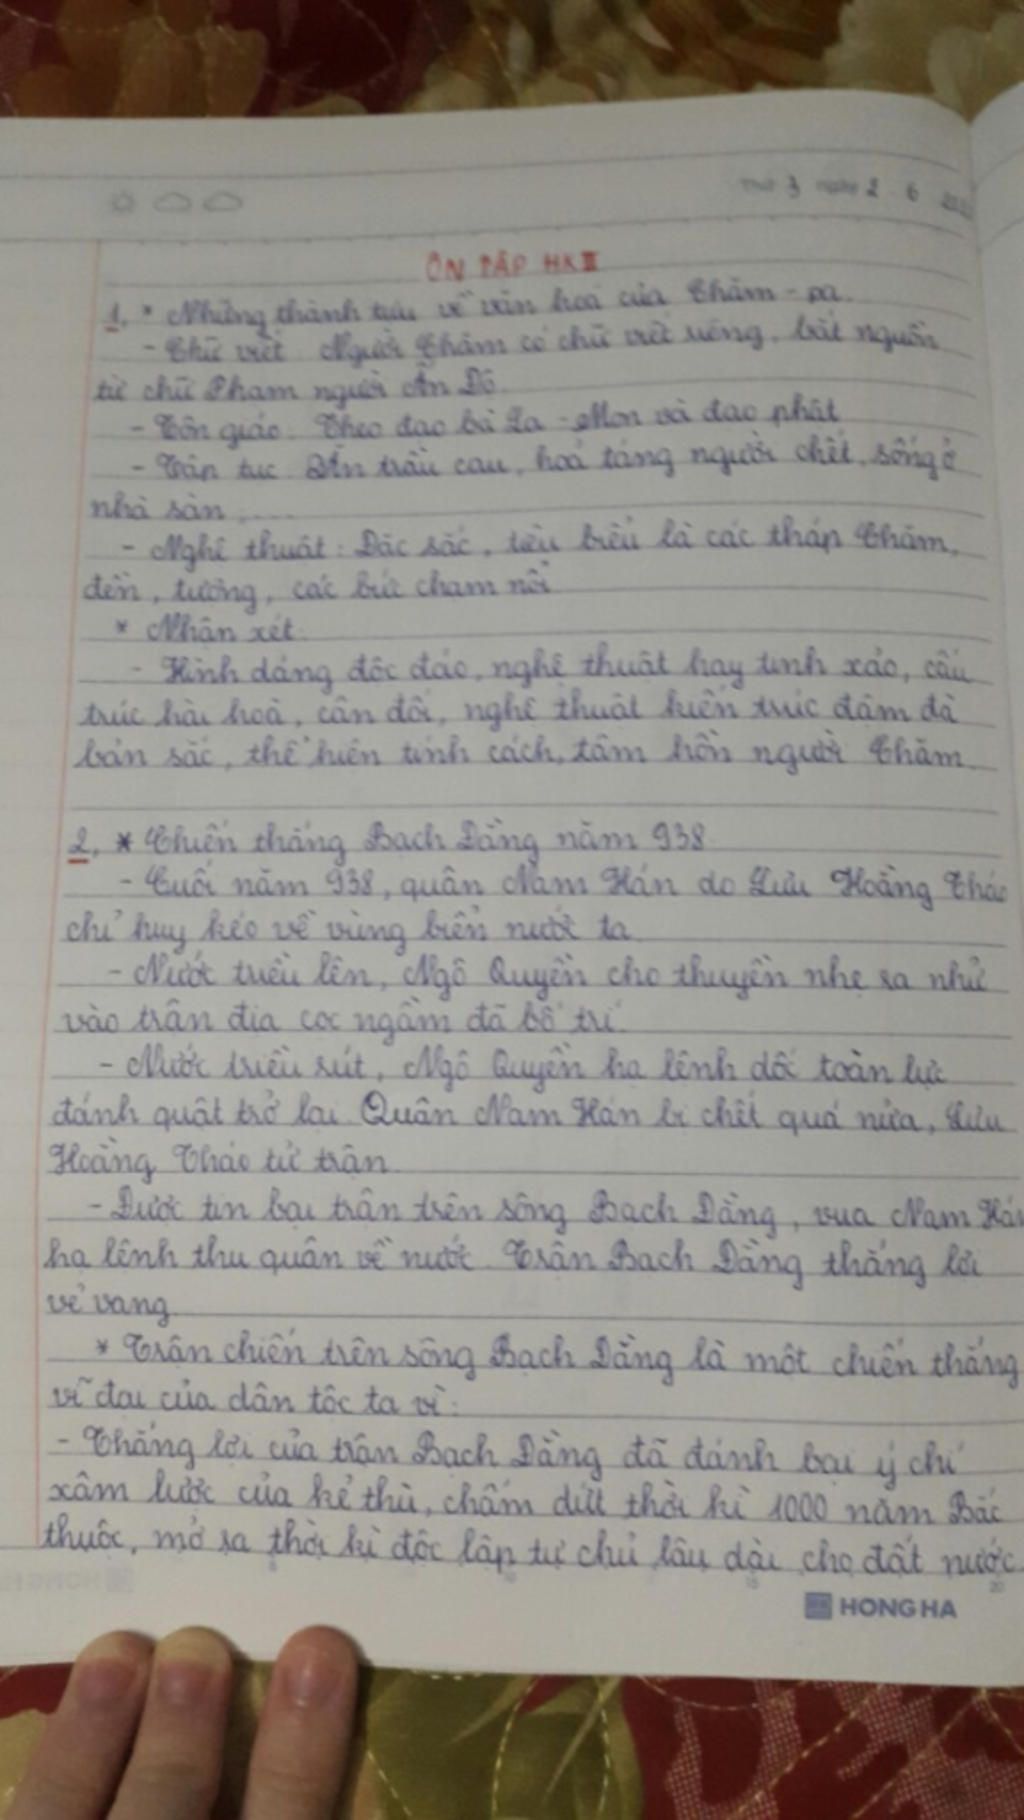 Thứ 3 ngày 2 6
ÔN TẬP HK II
1. * Những thành tựu về văn hoá của Chăm-pa.
- Chữ viết: Người Chăm có chữ viết riêng, bắt nguồn
từ chữ Phạm người Ấn Độ
- Tôn giáo: Theo đạo bà La-Mon và đạo phật
- Tập tục: Ăn trầu cau, hoả táng người chết, sống ở
nhà sàn,....
- Nghệ thuật: Đặc sắc, tiêu biểu là các tháp Chăm,
đền, tượng, các bức chạm nổi
* Nhận xét:
- Hình dáng độc đáo, nghệ thuật hay tinh xảo, cấu
trúc hài hoà, cân đối, nghệ thuật kiến trúc đậm đà
bản sắc, thể hiện tính cách, tâm hồn người Chăm.
2. * Chiến thắng Bạch Đằng năm 938
- Cuối năm 938, quân Nam Hán do Lưu Hoằng Tháo
chỉ huy kéo về vùng biển nước ta
- Nước triều lên, Ngô Quyền cho thuyền nhẹ ra nhử
vào trận địa cọc ngầm đã bố trí.
- Nước triều rút, Ngô Quyền hạ lệnh dốc toàn lực
đánh quật trở lại. Quân Nam Hán bị chết quá nửa, Lưu
Hoằng Tháo tử trận.
- Được tin bại trận trên sông Bạch Đằng, vua Nam Hán
hạ lệnh thu quân về nước. Trận Bạch Đằng thắng lợi
vẻ vang
* Trận chiến trên sông Bạch Đằng là một chiến thắng
vĩ đại của dân tộc ta vì:
- Thắng lợi của trận Bạch Đằng đã đánh bại ý chí
xâm lược của kẻ thù, chấm dứt thời kì 1000 năm Bắc
thuộc, mở ra thời kì độc lập tự chủ lâu dài cho đất nước.
HONG HA